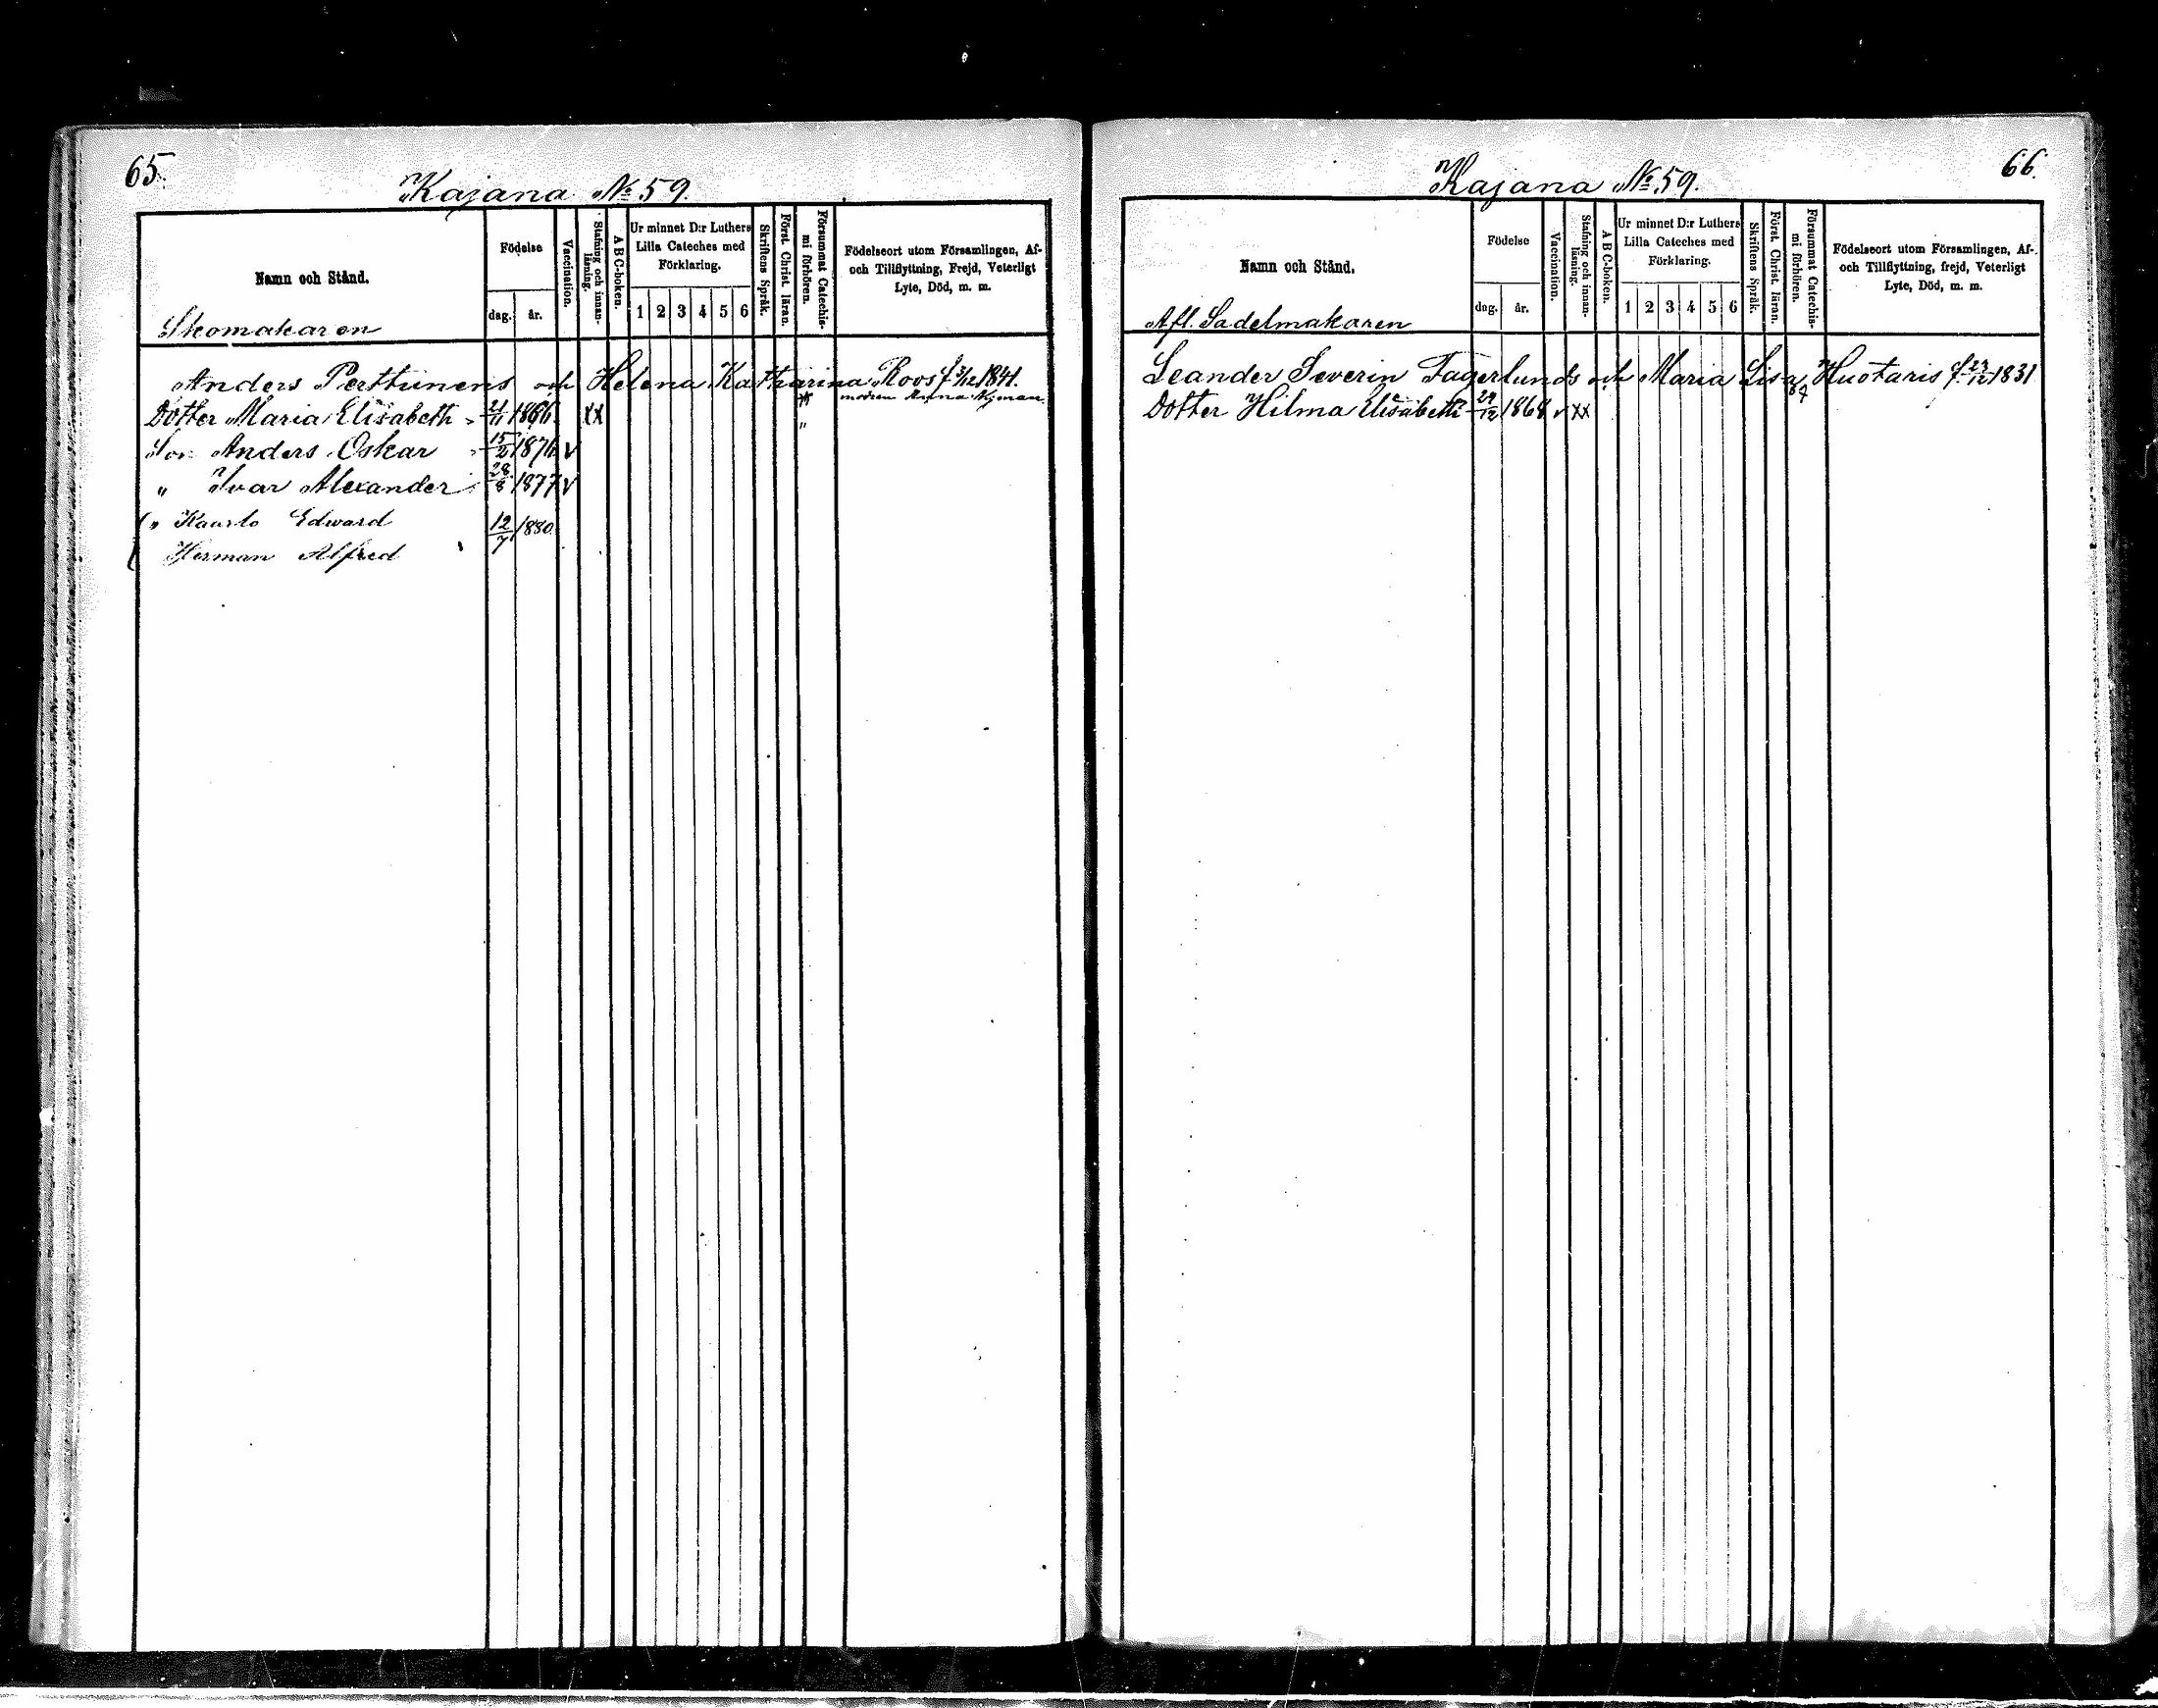 65.
Kajana № 59.
Namn och Stånd.
Födelse
dag.
år.
Vaccination.
Stafning och innan-
läsning.
A B C-boken.
Ur minnet D:r Luthers
Lilla Cateches med
Förklaring.
1 2 3 4 5 6
Skriftens Språk.
Först. Christ. läran.
Försummat Catechis-
mi förhören.
Födelseort utom Församlingen, Af-
och Tillflyttning, Frejd, Veterligt
Lyte, Död, m. m.
Skomakaren
Anders Perttunens och Helena Katharina Roos f. 3/12 1841.
modren Anna Nyman.
Dotter Maria Elisabeth 21/11 1866 xx "
Son Anders Oskar 15/2 1876 v
" Ivar Alexander 28/8 1877 v
" Kaarlo Edward 12/7 1880
Herman Alfred
66.
Kajana № 59.
Namn och Stånd.
Födelse
dag.
år.
Vaccination.
Stafning och innan-
läsning.
A B C-boken.
Ur minnet D:r Luthers
Lilla Cateches med
Förklaring.
1 2 3 4 5 6
Skriftens Språk.
Först. Christ. läran.
Försummat Catechis-
mi förhören.
Födelseort utom Församlingen, Af-
och Tillflyttning, frejd, Veterligt
Lyte, Död, m. m.
Afl. Sadelmakaren
Leander Severin Fagerlunds och Maria Lisa Huotaris f. 23/12 1831
Dotter Hilma Elisabeth 29/12 1868 v xx